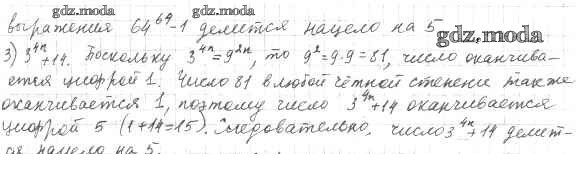 gdz.moda gdz.moda
выражения 64⁶⁴-1 делится нацело на 5
gdz.moda
3) 3⁴ⁿ+14. Поскольку 3⁴ⁿ=9²ⁿ, то 9²=9·9=81, число оканчива-
ется цифрой 1. Число 81 в любой чётной степени также
оканчивается 1, поэтому число 3⁴ⁿ+14 оканчивается
цифрой 5 (1+14=15). Следовательно, число 3⁴ⁿ+14 делит-
ся нацело на 5.